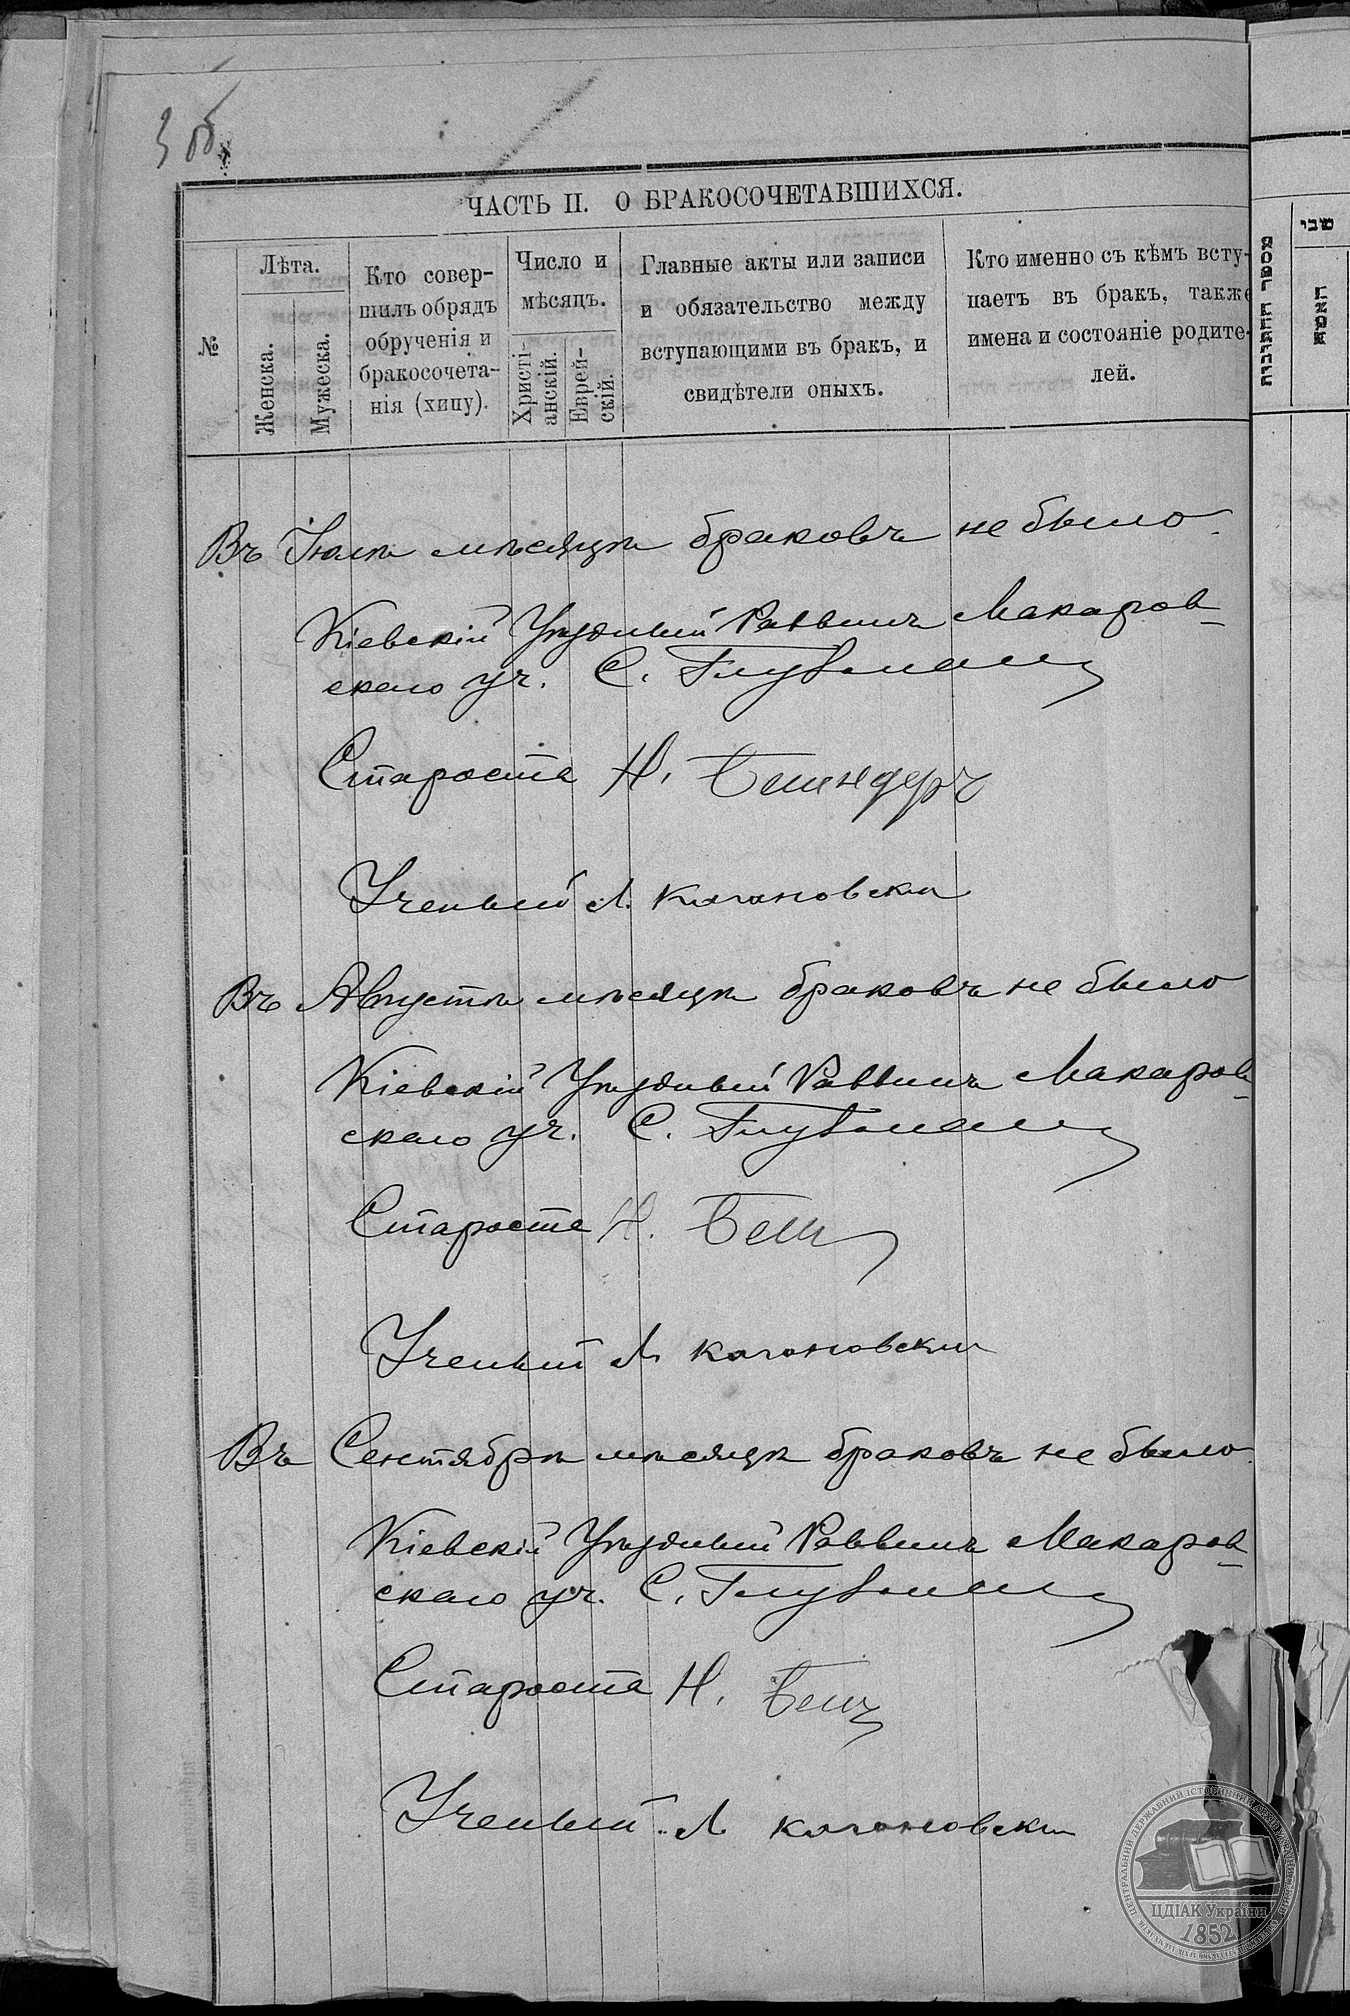 3 об.
ЧАСТЬ II. О БРАКОСОЧЕТАВШИХСЯ.
№
Лѣта.
Женска.
Мужеска.
Кто совер-
шилъ обрядъ
обрученія и
бракосочета-
нія (хипу).
Число и
мѣсяцъ.
Христі-
анскій.
Еврей-
скій.
Главные акты или записи
и обязательство между
вступающими въ бракъ, и
свидѣтели оныхъ.
Кто именно съ кѣмъ всту-
паетъ въ бракъ, также
имена и состояніе родите-
лей.
מספר החתונות
מבי
האשה
Въ Іюлѣ мѣсяцѣ браковъ не было.
Кіевскій Уѣздный Раввинъ Макаров-
скаго уч. С.
Староста Н.
Ученый Л. Кагановски
Въ Августѣ мѣсяцѣ браковъ не было
Кіевскій Уѣздный Раввинъ Макаров-
скаго уч. С.
Староста Н.
Ученый Л Кагановски
Въ Сентябрѣ мѣсяцѣ браковъ не было.
Кіевскій Уѣздный Раввинъ Макаров-
скаго уч. С.
Староста Н.
Ученый Л Кагановски
ЦДІАК України
1852